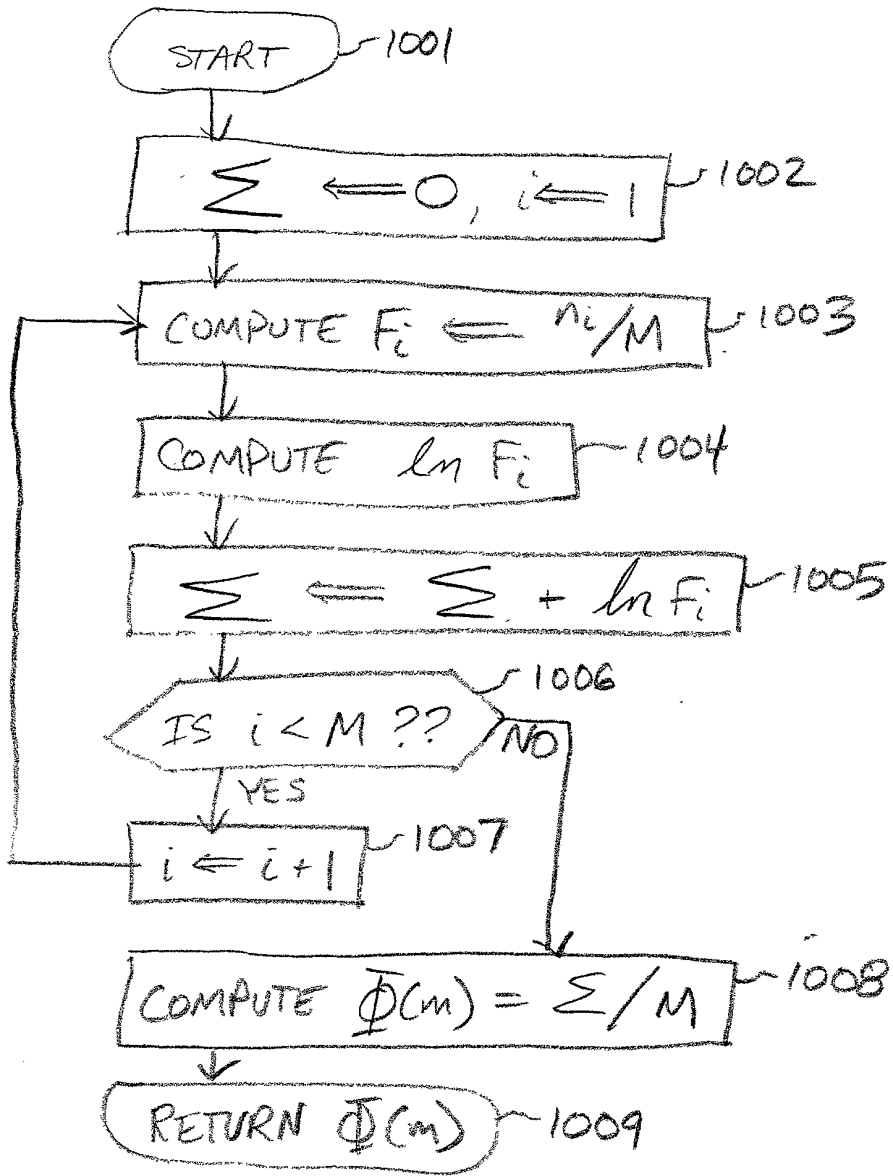 START 1001
Σ ⇐ 0, i ⇐ 1 1002
COMPUTE Fi ⇐ ni/M 1003
COMPUTE ln Fi 1004
Σ ⇐ Σ + ln Fi 1005
1006
IS i < M ?? NO
YES
i ⇐ i + 1 1007
COMPUTE Φ(m) = Σ/M 1008
RETURN Φ(m) 1009